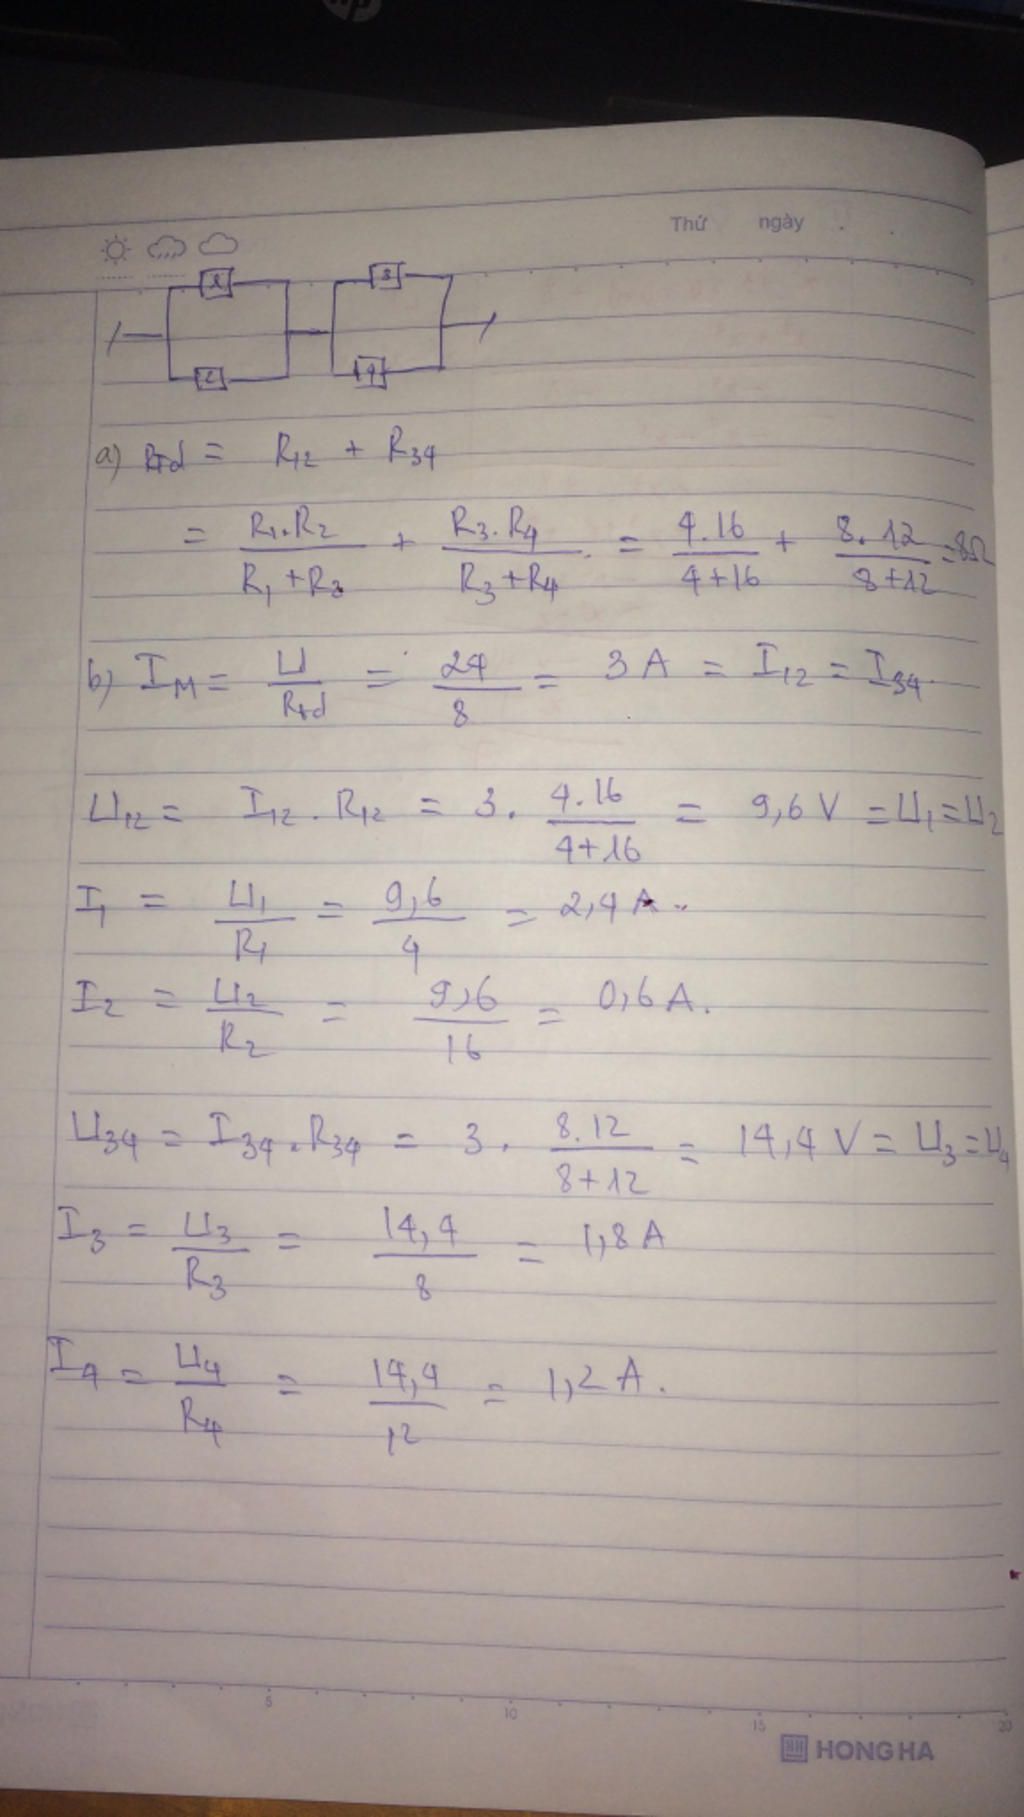 Thứ ngày
1 3
2 4
a) Rtđ = R12 + R34
= R1.R2 / R1+R3 + R3.R4 / R3+R4 = 4.16 / 4+16 + 8.12 / 8+12 = 8Ω
b) IM = U / Rtđ = 24 / 8 = 3 A = I12 = I34.
U12 = I12 . R12 = 3 . 4.16 / 4+16 = 9,6 V = U1 = U2
I1 = U1 / R1 = 9,6 / 4 = 2,4 A.
I2 = U2 / R2 = 9,6 / 16 = 0,6 A.
U34 = I34 . R34 = 3 . 8.12 / 8+12 = 14,4 V = U3 = U4
I3 = U3 / R3 = 14,4 / 8 = 1,8 A
I4 = U4 / R4 = 14,4 / 12 = 1,2 A.
5 10 15 20
HONG HA